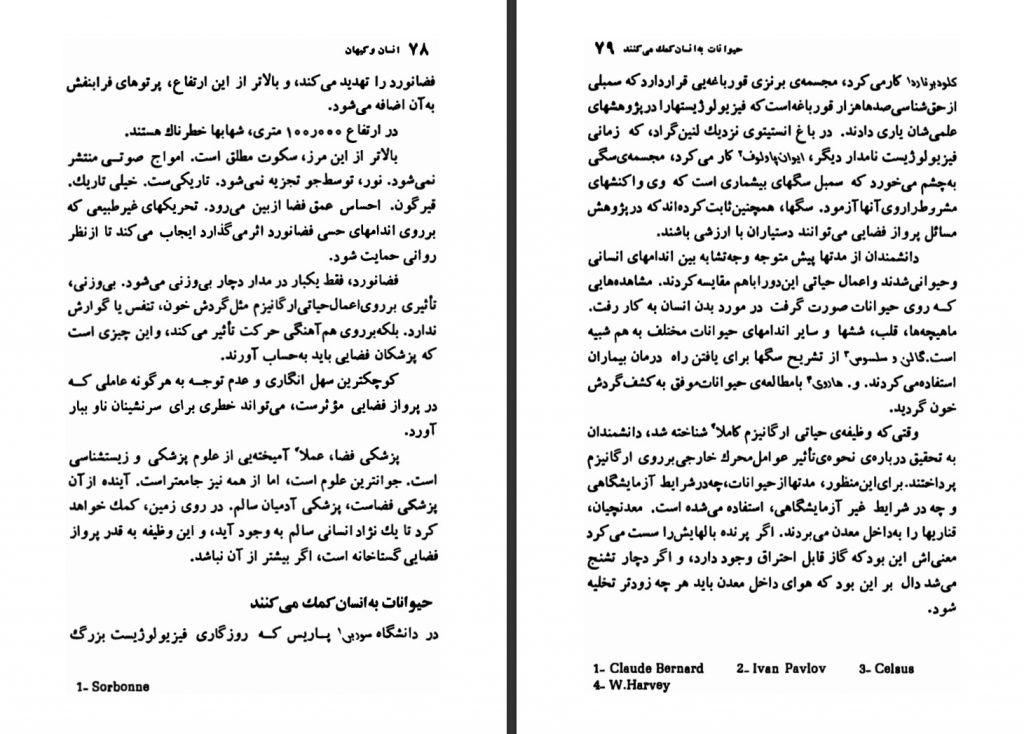 ۷۸ انسان و کیهان
فضانورد را تهدید می‌کند، و بالاتر از این ارتفاع، پرتوهای فرابنفش
به‌آن اضافه می‌شود.
در ارتفاع ۱۰۰٫۰۰۰ متری، شهابها خطرناك هستند.
بالاتر از این مرز، سکوت مطلق است. امواج صوتی منتشر
نمی‌شود. نور، توسط‌جو تجزیه نمی‌شود. تاریکی‌ست. خیلی تاریك.
قیرگون. احساس عمق فضا ازبین می‌رود. تحریکهای غیرطبیعی که
برروی اندامهای حسی فضانورد اثرمی‌گذارد ایجاب می‌کند تا ازنظر
روانی حمایت شود.
فضانورد، فقط یکبار در مدار دچار بی‌وزنی می‌شود. بی‌وزنی،
تأثیری برروی‌اعمال‌حیاتی‌ارگانیزم مثل‌گردش خون، تنفس یا گوارش
ندارد. بلکه‌برروی هم‌آهنگی حرکت تأثیر می‌کند، واین چیزی است
که پزشکان فضایی باید به‌حساب آورند.
کوچکترین سهل انگاری و عدم توجه به هرگونه عاملی کـه
در پرواز فضایی مؤثرست، می‌تواند خطری برای سرنشینان ناو ببار
آورد.
پزشکی فضا، عملاً آمیخته‌یی از علوم پزشکی و زیستشناسی
است. جوانترین علوم است، اما از همه نیز جامعتراست. آینده ازآن
پزشکی فضاست، پزشکی آدمیان سالم. در روی زمین، کمك خواهد
کرد تا یك نژاد انسانی سالم به وجود آید، و این وظیفه به قدر پرواز
فضایی گستاخانه است، اگر بیشتر از آن نباشد.
حیوانات به‌انسان‌کمك می‌کنند
در دانشگاه سوربن۱ پـاریس کـه روزگاری فیزیولوژیست بزرگ
1- Sorbonne
حیوانات به‌انسان‌کمك می‌کنند ۷۹
کلودبرنارد۱ کارمی‌کرد، مجسمه‌ی برنزی قورباغه‌یی قراردارد که سمبلی
ازحق‌شناسی صدهاهزار قورباغه‌است‌که فیزیولوژیستها‌را درپژوهشهای
علمی‌شان یاری دادند. در باغ انستیتوی نزدیك لنین‌گراد، که زمانی
فیزیولوژیست نامدار دیگر، ایوان‌پاولوف۲ کار می‌کرد، مجسمه‌ی‌سگی
به‌چشم می‌خورد که سمبل سگهای بیشماری است که وی واکنشهای
مشروط‌را‌روی‌آنها‌آزمود. سگها، همچنین‌ثابت‌کرده‌اند‌که درپژوهش
مسائل پرواز فضایی می‌توانند دستیاران با ارزشی باشند.
دانشمندان از مدتها پیش متوجه وجه‌تشابه بین اندامهای انسانی
وحیوانی‌شدند واعمال حیاتی این‌دوراباهم مقایسه‌کردند. مشاهده‌هایی
کـه روی حیوانات صورت گرفت در مورد بدن انسان به کار رفت.
ماهیچه‌ها، قلب، ششها و سایر اندامهای حیوانات مختلف به هم شبیه
است. گالن و سلسوس۳ از تشریح سگها برای یافتن راه درمان بیماران
استفاده‌می‌کردند. و. هاروی۴ بامطالعه‌ی حیوانات‌موفق به‌کشف‌گردش
خون گردید.
وقتی‌که وظیفه‌ی حیاتی ارگانیزم کاملاً شناخته شد، دانشمندان
به تحقیق درباره‌ی نحوه‌ی‌تأثیر عوامل‌محرك خارجی‌برروی ارگانیزم
پرداختند. برای‌این‌منظور، مدتها‌ازحیوانات، چه‌درشرایط آزمایشگاهی
و چه در شرایط غیر آزمایشگاهی، استفاده می‌شده است. معدنچیان،
قناریها را به‌داخل معدن می‌بردند. اگر پرنده بالهایش‌را سست می‌کرد
معنی‌اش این بودکه گاز قابل احتراق وجود دارد، و اگر دچار تشنج
می‌شد دال بر این بود که هوای داخل معدن باید هر چه زودتر تخلیه
شود.
1- Claude Bernard 2- Ivan Pavlov 3- Celsus
4- W.Harvey